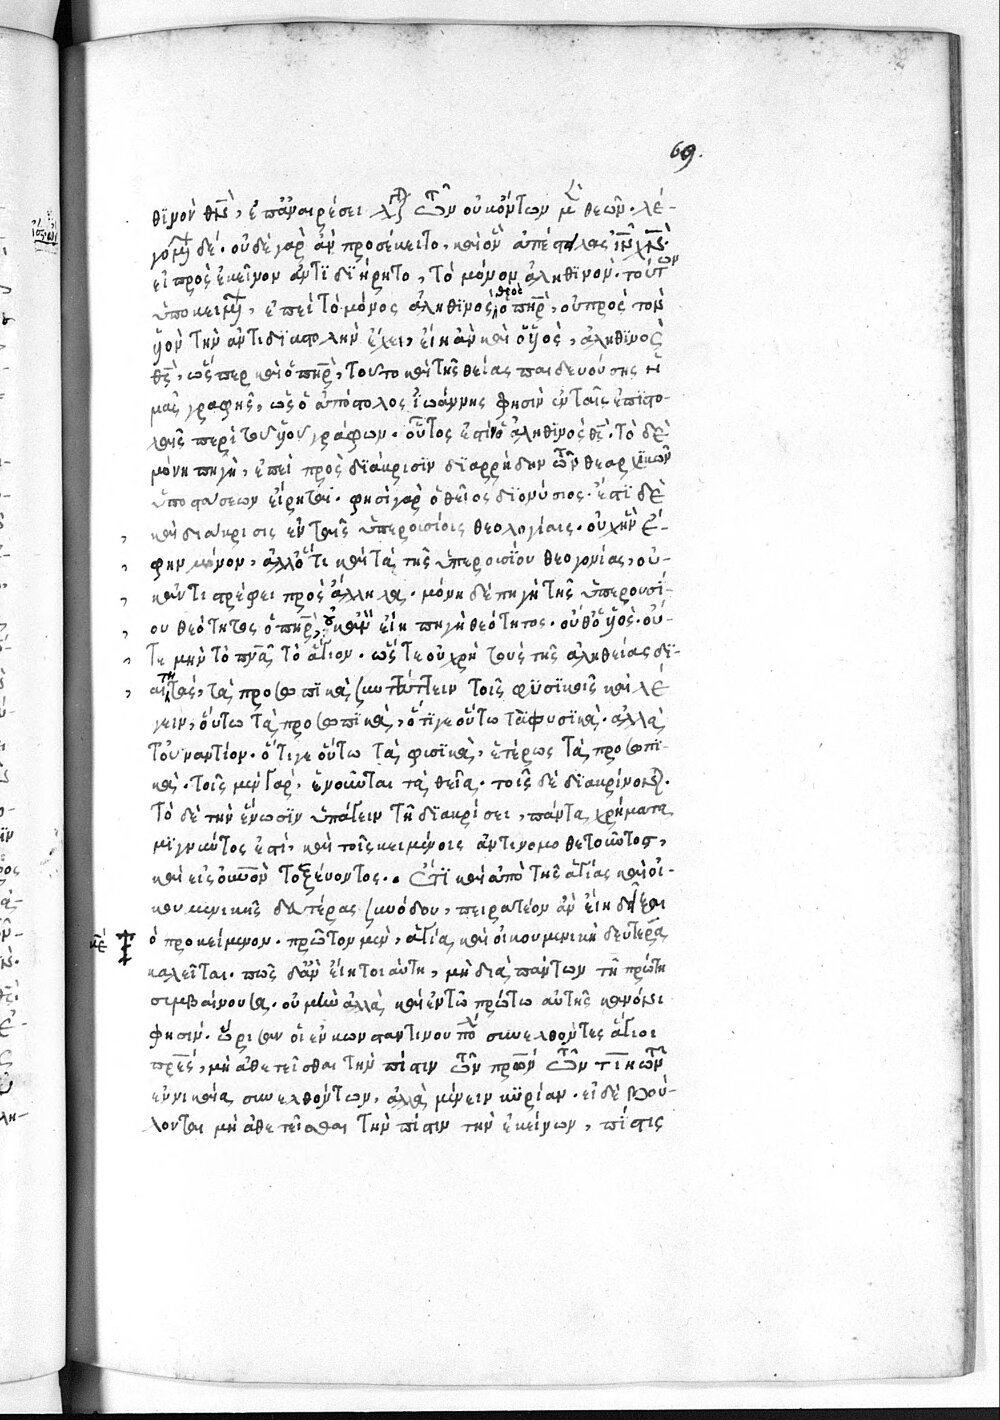 69.
θϊνὸν θν̅, ἐπἀναιρέσει τῶν οὐκὄντων μὲν θεῶν. λέ-
γομένων δέ. οὐδὲ γὰρ ἂν προσέκειτο, καὶ ὃν ἀπέστειλας ι̅ν̅ χ̅ν̅.
εἰ πρὸς ἐκεῖνον ἀντϊδϊῄρητο, τὸ μόνον ἀληθϊνὸν. τούτων
ὑποκειμένων, ἐπεὶ τὸ μόνος ἀληθϊνὸς θεὸς ὁ πη̅ρ̅, οὐ πρὸς τὸν
υἱὸν τὴν ἀντιδϊαστολὴν ἔχει, εἴη ἂν καὶ ὁ υἱὸς, ἀληθϊνὸς
θς̅, ὥσπερ καὶ ὁ πη̅ρ̅, τοῦτο καὶ τῆς θείας παιδευούσης ἡ-
μᾶς γραφῆς, ὡς ὁ ἀπόστολος ἰωάννης φησὶν ἐν ταῖς ἐπιστο-
λαῖς περὶ τοῦ υἱοῦ γράφων. οὗτος ἐστὶν ὁ ἀληθϊνὸς θς̅. τὸ δὲ
μόνη πηγὴ, ἐπεὶ πρὸς δϊάκρισϊν δϊαρρήδην τῶν θεαρχϊκῶν
ὑποστάσεων εἴρηται. φησὶ γὰρ ὁ θεῖος δϊονύσιος. ἔστϊ δὲ
καὶ διάκρισις ἐν ταῖς ὑπερουσίοις θεολογίαις. οὐχ ἣν ἔ-
φην μόνον, ἀλλ' ὅτι καὶ τὰ τῆς ὑπερουσίου θεογονίας, οὐ-
κ ἀντιστρέφει πρὸς ἄλληλα. μόνη δὲ πηγὴ τῆς ὑπερουσί-
ου θεότητος ὁ πη̅ρ̅, οὐκ ἂν εἴη πηγὴ θεότητος. οὔθ' ὁ υἱὸς. οὔ-
τε μὴν τὸ πν̅α̅ τὸ ἅγιον. ὥστε οὐ χρὴ τοὺς τῆς ἀληθείας δϊ-
αιτητὰς, τὰ προσωπϊκὰ συνάπτειν τοῖς φϋσϊκοῖς καὶ λέ-
γειν, οὕτω τὰ προσωπϊκὰ, ὅτϊγε οὕτω τὰ φυσϊκὰ. ἀλλὰ
τοὐναντίον. ὅτιγε οὕτω τὰ φυσϊκὰ, ἑτέρως τὰ προσωπϊ-
κὰ. τοῖς μὲν γὰρ, ἑνοῦνται τὰ θεῖα. τοῖς δὲ δϊακρίνονται.
τὸ δὲ τὴν ἕνωσϊν ὑπάγειν τῇ δϊακρίσει, πάντα χρήματα
μϊγνῦντος ἐστὶ, καὶ τοῖς κειμένοις ἀντινομοθετοῦντος,
καὶ εἰς οὐρανὸν τοξεύοντος. ἔτϊ καὶ ἀπὸ τῆς ἁγίας καὶ οἰ-
κουμενικῆς δευτέρας συνόδου, πειρατέον ἂν εἴη δεῖξαι
ὁ προκείμενον. πρῶτον μὲν, ἁγία καὶ οἰκουμενικὴ δευτέρα
καλεῖται. πῶς δ' ἂν εἴη τοιαύτη, μὴ διὰ πάντων τῇ πρώτῃ
συμβαίνουσα. οὐ μὴν ἀλλὰ καὶ ἐν τῷ πρώτῳ αὐτῆς κανόνι
φησὶν. ὥρισαν οἱ ἐν κωνσταντινουπόλει συνελθόντες ἅγιοι
πρ̅ε̅ς̅, μὴ ἀθετεῖσθαι τὴν πίστιν τῶν πρ̅ω̅ν̅ τῶν τιη τῶν
ἐν νικαίᾳ συνελθόντων, ἀλλὰ μένειν κϋρίαν. εἰ δὲ βού-
λονται μὴ ἀθετεῖσθαι τὴν πίστιν τὴν ἐκείνων, πίστις